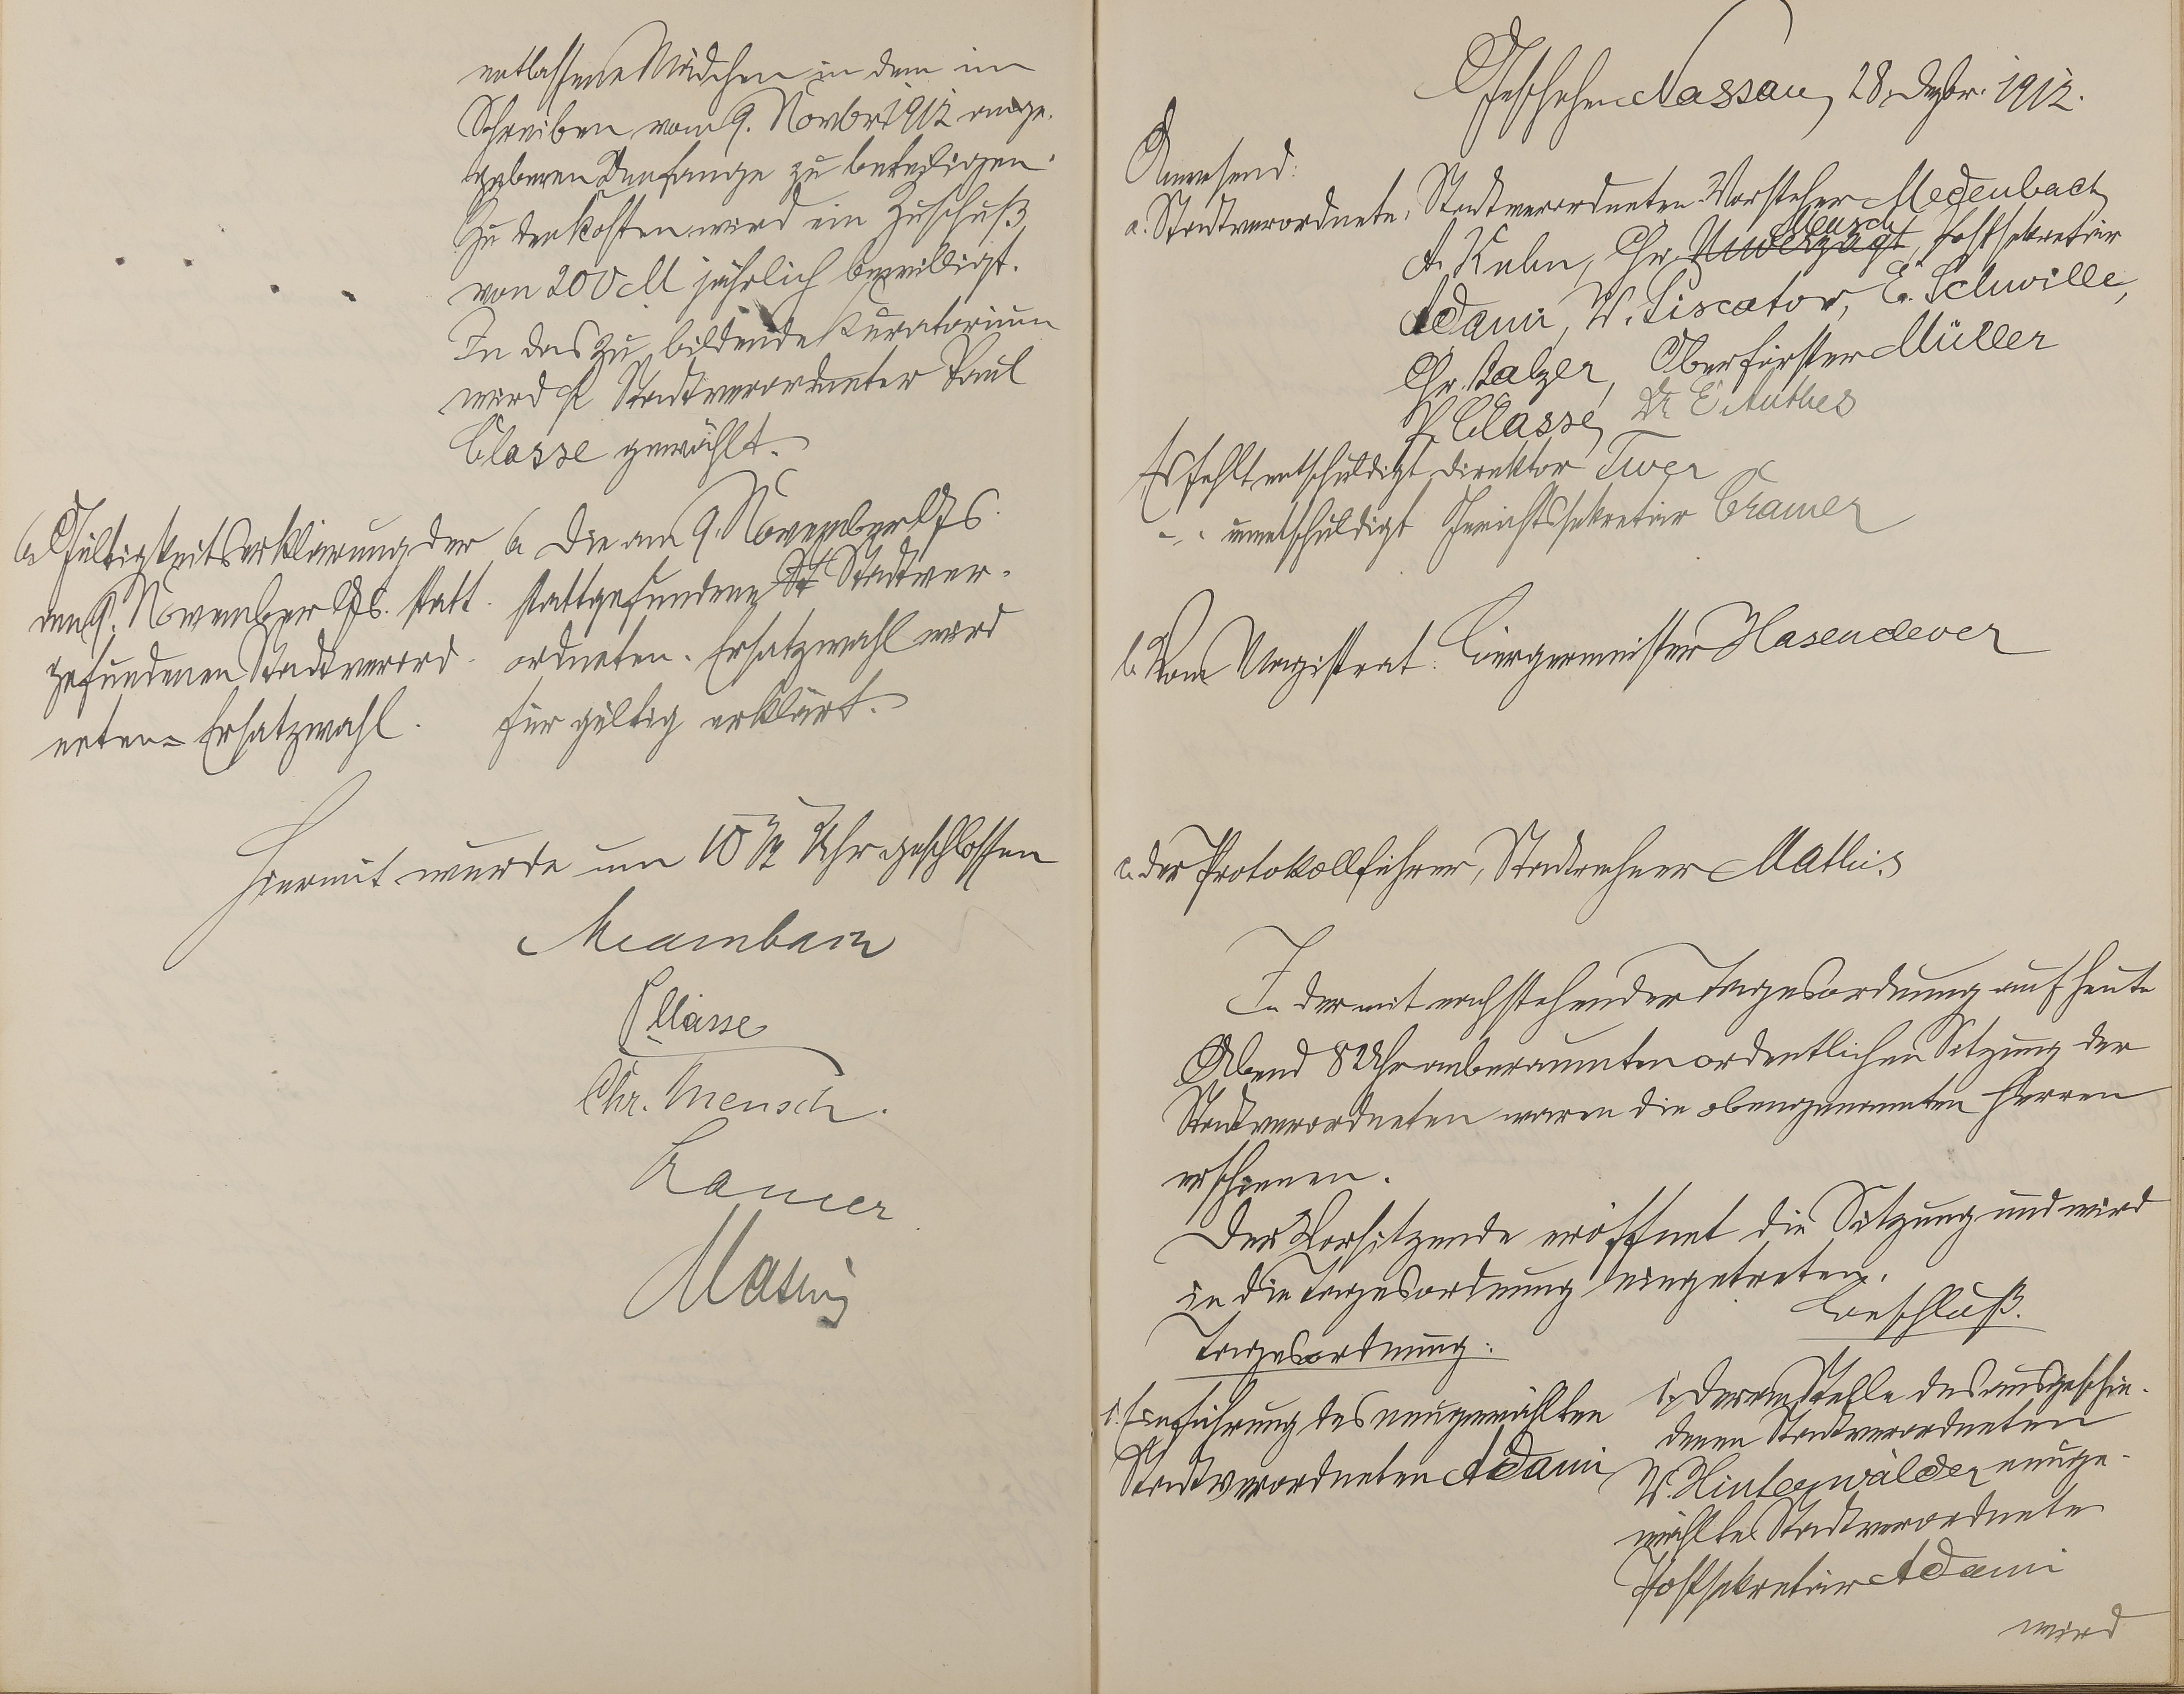 entlassene Mädchen in dem im
Schreiben vom 9. Novbr 1912 ange-
gebenen Umfange zu beteiligen.
Zu den Kosten wird ein Zuschuß
von 200 M jährlich bewilligt.
In das zu bildende Kuratorium
wird H. Stadtverordneter Paul
Classe gewählt.
6. Gültigkeitserklärung der
am 9. November ds. Js. statt-
gefundenen Stadtverord-
neten-Ersatzwahl.
6. Die am 9. November ds. Js.
stattgefundene St Stadtver-
ordneten-Ersatzwahl wird
für gültig erklärt.
Hiermit wurde um 10 1/2 Uhr geschlossen
Medenbach
P Classe
Chr. Mensch.
Cramer
Mathis
Geschehen Nassau, 28. Dezbr. 1912.
Anwesend:
a. Stadtverordnete: Stadtverordneten-Vorsteher Medenbach
A. Kuhn, Chr. Unverzagt Mensch, Postsekretär
Adami, W. Piscator, E. Schwille,
Chr. Balzer, Oberförster Müller
P. Classe, Dr E Anthes
Es fehlt entschuldigt Direktor Twer
- " - unentschuldigt Gerichtssekretär Cramer
b. Vom Magistrat: Bürgermeister Hasenclever
c. der Protokollführer, Stadtrechner Mathis
In der mit nachstehender Tagesordnung auf heute
Abend 8 Uhr anberaumten ordentlichen Sitzung der
Stadtverordneten waren die obengenannten Herren
erschienen.
Der Vorsitzende eröffnet die Sitzung und wird
in die Tagesordnung eingetreten.
Tagesordnung:
Beschluß.
1. Einführung des neugewählten
Stadtverordneten Adami
1. Der an Stelle des ausgeschie-
denen Stadtverordneten
W. Hinterwälder neuge-
wählte Stadtverordnete
Postsekretär Adami
wird